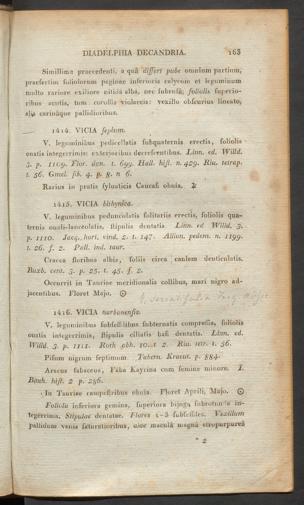 DIADELPHIA DECANDRIA. 163
Simillima praecedenti, a qua differt pube omnium partium,
praesertim foliolorum paginae inferioris calycum et leguminum
multo rariore exiliore nitida alba, nec fubrufa; foliolis superio-
ribus acutis, tum corollis violaceis: vexillo obscurius lineato,
alis carinaque pallidioribus.
1414. VICIA sepium.
V. leguminibus pedicellatis subquaternis erectis, foliolis
ovatis integerrimis: exterioribus decrescentibus. Linn. ed. Willd.
3. p. 1109. Flor. dan. t. 699. Hall. hist. n. 429. Riv. tetrap.
t. 56. Gmel. sib. 4. p. 8. n 6.
Rarius in pratis sylvaticis Caucasi obvia. ♃
1415. VICIA bithynica.
V. leguminibus pedunculatis solitariis erectis, foliolis qua-
ternis ovali-lanceolatis, stipulis dentatis Linn. ed Willd. 3.
p. 1110. Jacq. hort. vind. 2. t. 147. Allion. pedem. n. 1199.
t. 26. f. 2. Pall. ind. taur.
Cracca floribus albis, foliis circa caulem denticulatis.
Buxb. cent. 3. p. 25. t. 45. f. 2.
Occurrit in Tauriae meridionalis collibus, mari nigro ad-
jacentibus. Floret Majo. ☉
1416. VICIA narbonensis.
V. leguminibus subsessilibus subternatis compressis, foliolis
ovatis integerrimis, stipulis ciliatis basi dentatis. Linn. ed.
Willd. 3. p. 1111. Roth obs. 10. t 2. Riv. tetr. t. 56.
Pisum nigrum septimum. Tabern. Kraeut. p. 884.
Aracus fabaceus, Faba Kayrina cum femine minore. I.
Bauh. hist. 2 p. 286.
In Tauriae campestribus obvia. Floret Aprili, Majo. ☉
Foliola inferiora gemina, superiora bijuga subrotunda in-
tegerrima. Stipulae dentatae. Flores 1-3 subsessiles. Vexillum
pallidum venis saturatioribus, alae macula magna atropurpurea
* 2